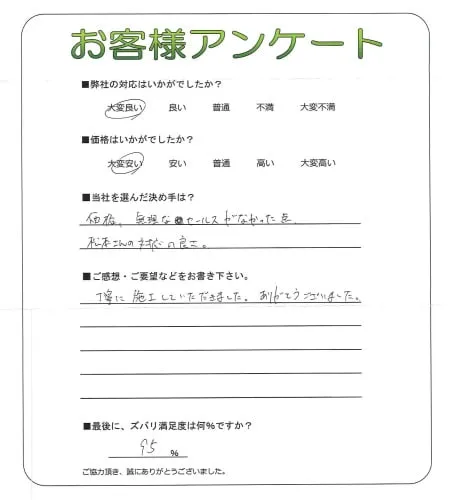 お客様アンケート
■弊社の対応はいかがでしたか？
大変良い 良い 普通 不満 大変不満
■価格はいかがでしたか？
大変安い 安い 普通 高い 大変高い
■当社を選んだ決め手は？
価格、無理なセールスがなかった点、
松本さんの対応の良さ。
■ご感想・ご要望などをお書き下さい。
丁寧に施工していただきました。ありがとうございました。
■最後に、ズバリ満足度は何%ですか？
95 %
ご協力頂き、誠にありがとうございました。